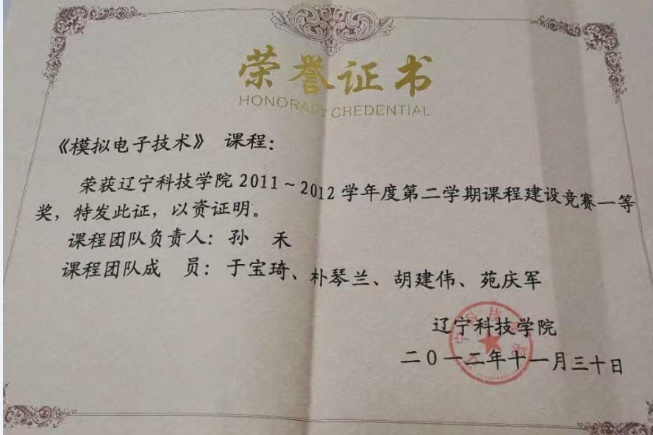 荣誉证书
HONORARY CREDENTIAL
《模拟电子技术》 课程：
荣获辽宁科技学院2011～2012学年度第二学期课程建设竞赛一等
奖，特发此证，以资证明。
课程团队负责人：孙 禾
课程团队成 员：于宝琦、朴琴兰、胡建伟、苑庆军
辽宁科技学院
二〇一二年十一月三十日